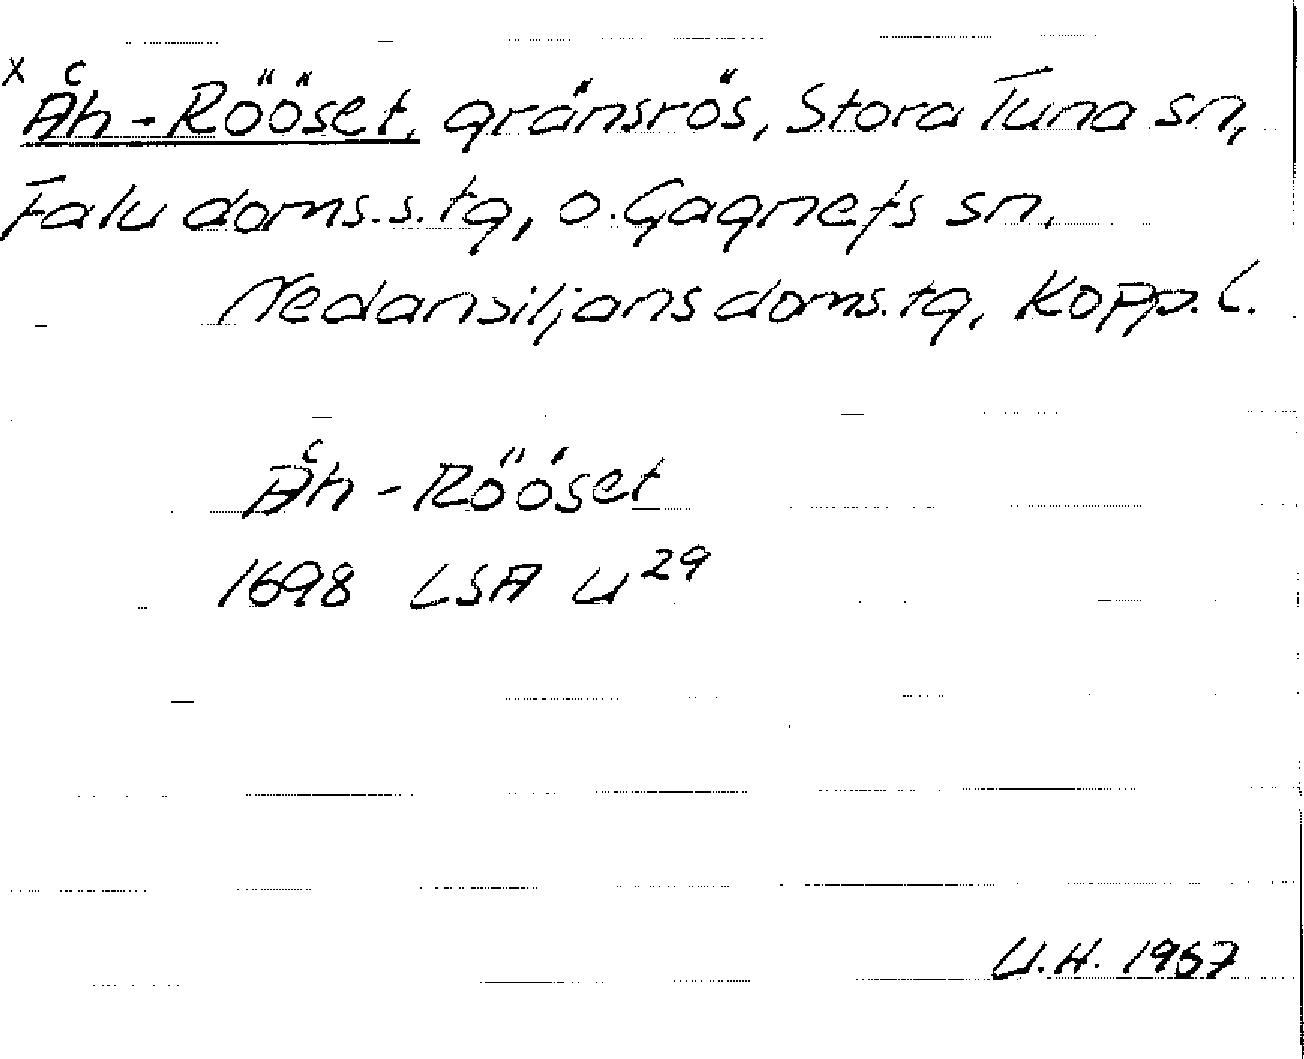 x Åh-Rööset, gränsrös, Stora Tuna sn,
Falu doms.s. tg, o. Gagnefs sn.
Nedansiljans doms. tg, Kopp. l.
Åh-Rööset
1698 LSA U 29
U.H. 1967